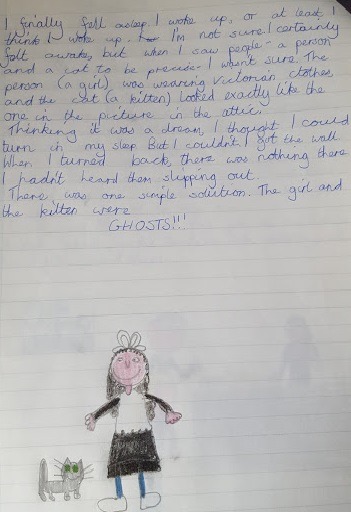 I finally fell asleep. I woke up, or at least I
think I woke up. I'm not sure. I certainly
felt awake, but when I saw people - a person
and a cat to be precise I wasn't sure. The
person (a girl) was wearing Victorian clothes,
and the cat (a kitten) looked exactly like the
one in the picture in the attic.
Thinking it was a dream, I thought I could
turn in my sleep. But I couldn't. I got the wall.
When I turned back, there was nothing there
I hadn't heard them slipping out.
There was one simple solution. The girl and
the kitten were
GHOSTS!!!